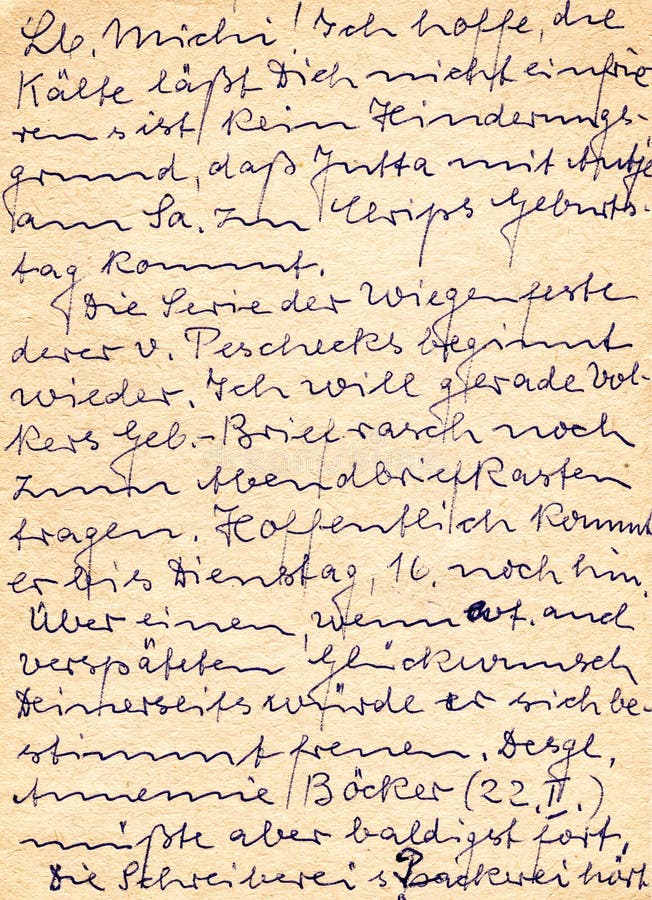 Lb. Michi! Ich hoffe, die
Kälte läßt Dich nicht einfrie
ren s ist kein Hinderungs-
grund, daß Jutta mit Antje
am Sa. zum Geburts-
tag kommt.
Die Serie der Wiegenfeste
derer v. Peschecks beginnt
wieder. Ich will gerade Vol-
kers Geb.-Brief rasch noch
zum Abendbriefkasten
tragen. Hoffentlich kommt
er bis Dienstag, 16. noch hin.
Über einen, wenn auch
verspäteten Glückwunsch
Deinerseits würde er sich be-
stimmt freuen. Desgl.
Annemie Böcker (22. II.)
müßte aber baldigst fort.
Die Schreiberei s Packerei hört